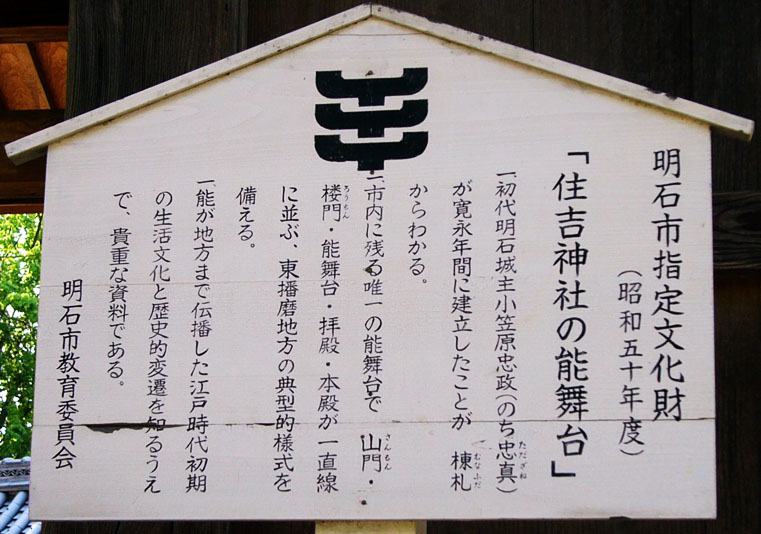 明石市指定文化財
（昭和五十年度）
「住吉神社の能舞台」
一、初代明石城主小笠原忠政（のち忠真）
ただざね
が寛永年間に建立したことが 棟札
むなふだ
からわかる。
一、市内に残る唯一の能舞台で 山門・
さんもん
楼門・能舞台・拝殿・本殿が一直線
ろうもん
に並ぶ、東播磨地方の典型的様式を
備える。
一、能が地方まで伝播した江戸時代初期
の生活文化と歴史的変遷を知るうえ
で、貴重な資料である。
明石市教育委員会